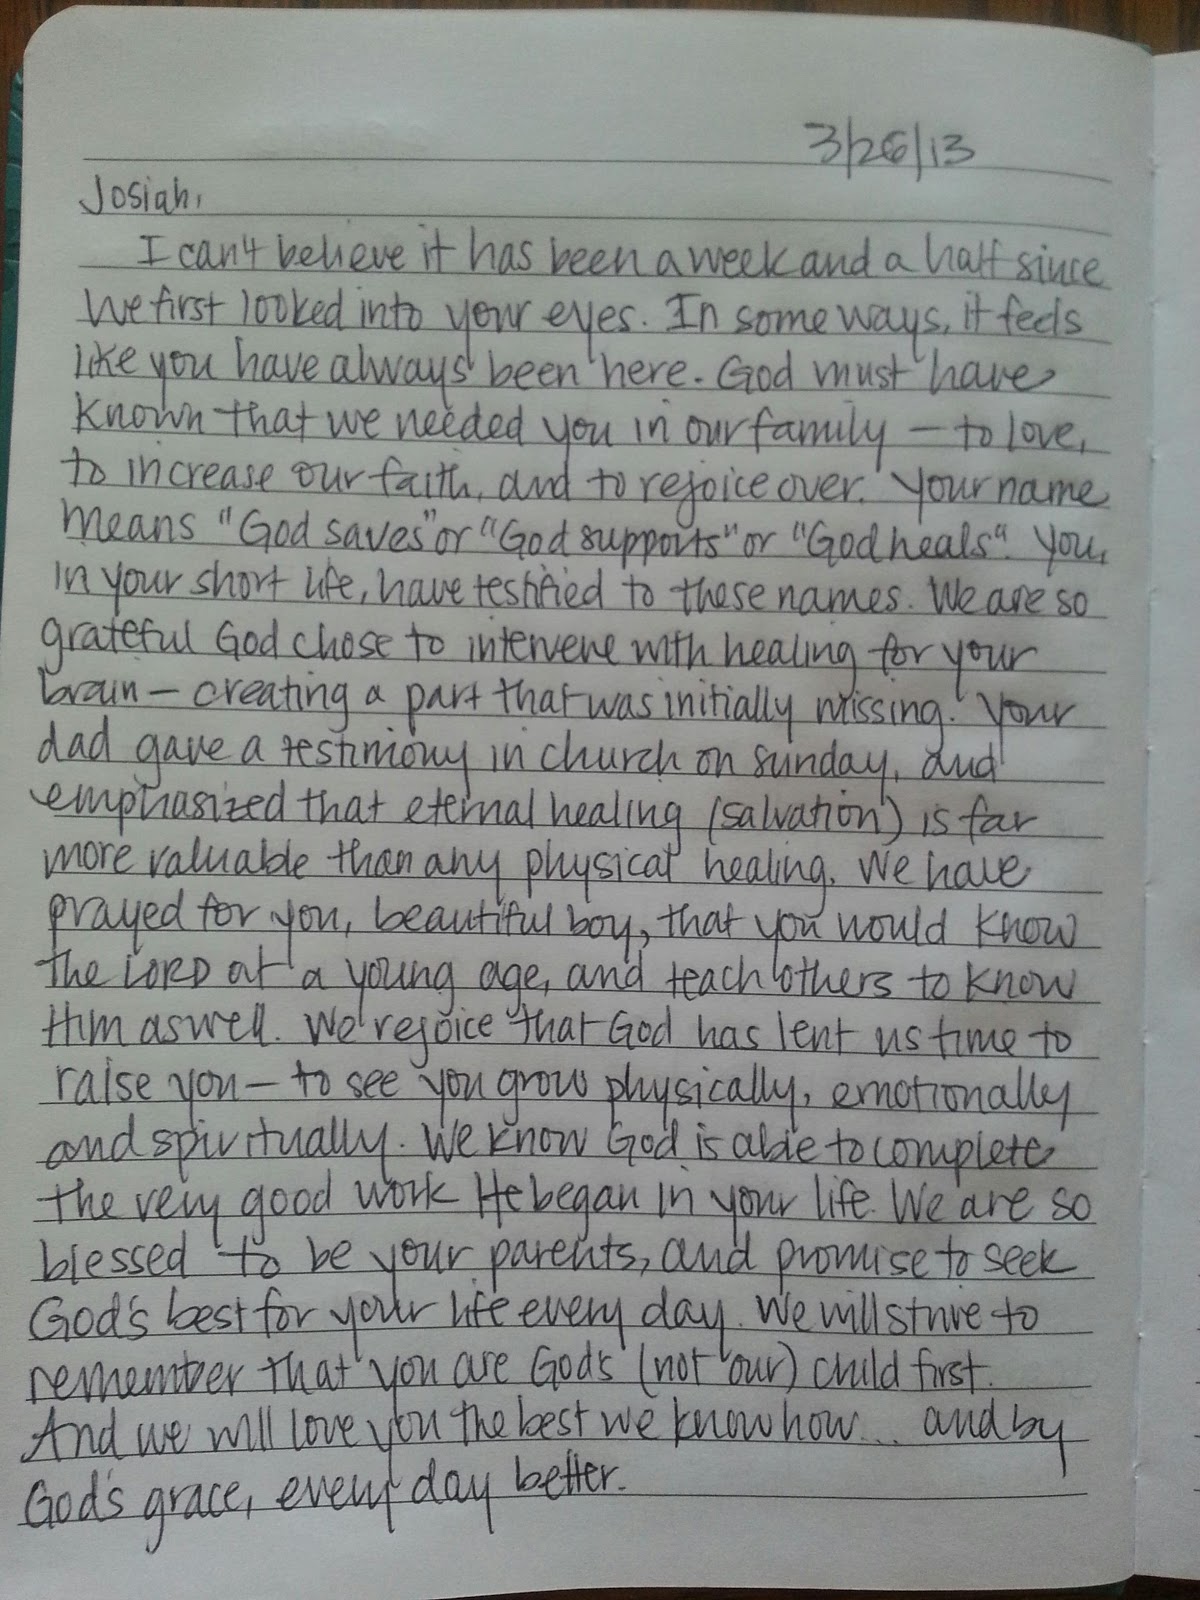 3/26/13
Josiah,
I can't believe it has been a week and a half since
we first looked into your eyes. In some ways, it feels
like you have always been here. God must have
known that we needed you in our family – to love,
to increase our faith, and to rejoice over. Your name
means "God saves" or "God supports" or "God heals". You,
in your short life, have testified to these names. We are so
grateful God chose to intervene with healing for your
brain – creating a part that was initially missing. Your
dad gave a testimony in church on Sunday, and
emphasized that eternal healing (salvation) is far
more valuable than any physical healing. We have
prayed for you, beautiful boy, that you would know
the LORD at a young age, and teach others to know
Him as well. We rejoice that God has lent us time to
raise you – to see you grow physically, emotionally
and spiritually. We know God is able to complete
the very good work He began in your life. We are so
blessed to be your parents, and promise to seek
God's best for your life every day. We will strive to
remember that you are God's (not our) child first.
And we will love you the best we know how... and by
God's grace, every day better.